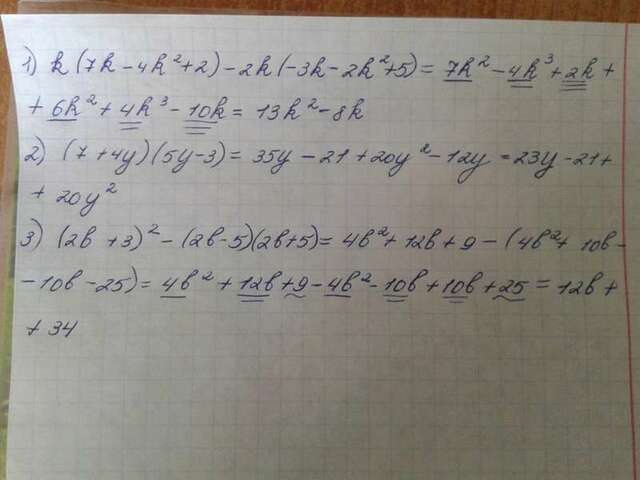 1) k (7k - 4k² + 2) - 2k (-3k - 2k² + 5) = 7k² - 4k³ + 2k +
+ 6k² + 4k³ - 10k = 13k² - 8k
2) (7 + 4y) (5y - 3) = 35y - 21 + 20y² - 12y = 23y - 21 +
+ 20y²
3) (2b + 3)² - (2b - 5)(2b + 5) = 4b² + 12b + 9 - (4b² + 10b -
- 10b - 25) = 4b² + 12b + 9 - 4b² - 10b + 10b + 25 = 12b +
+ 34